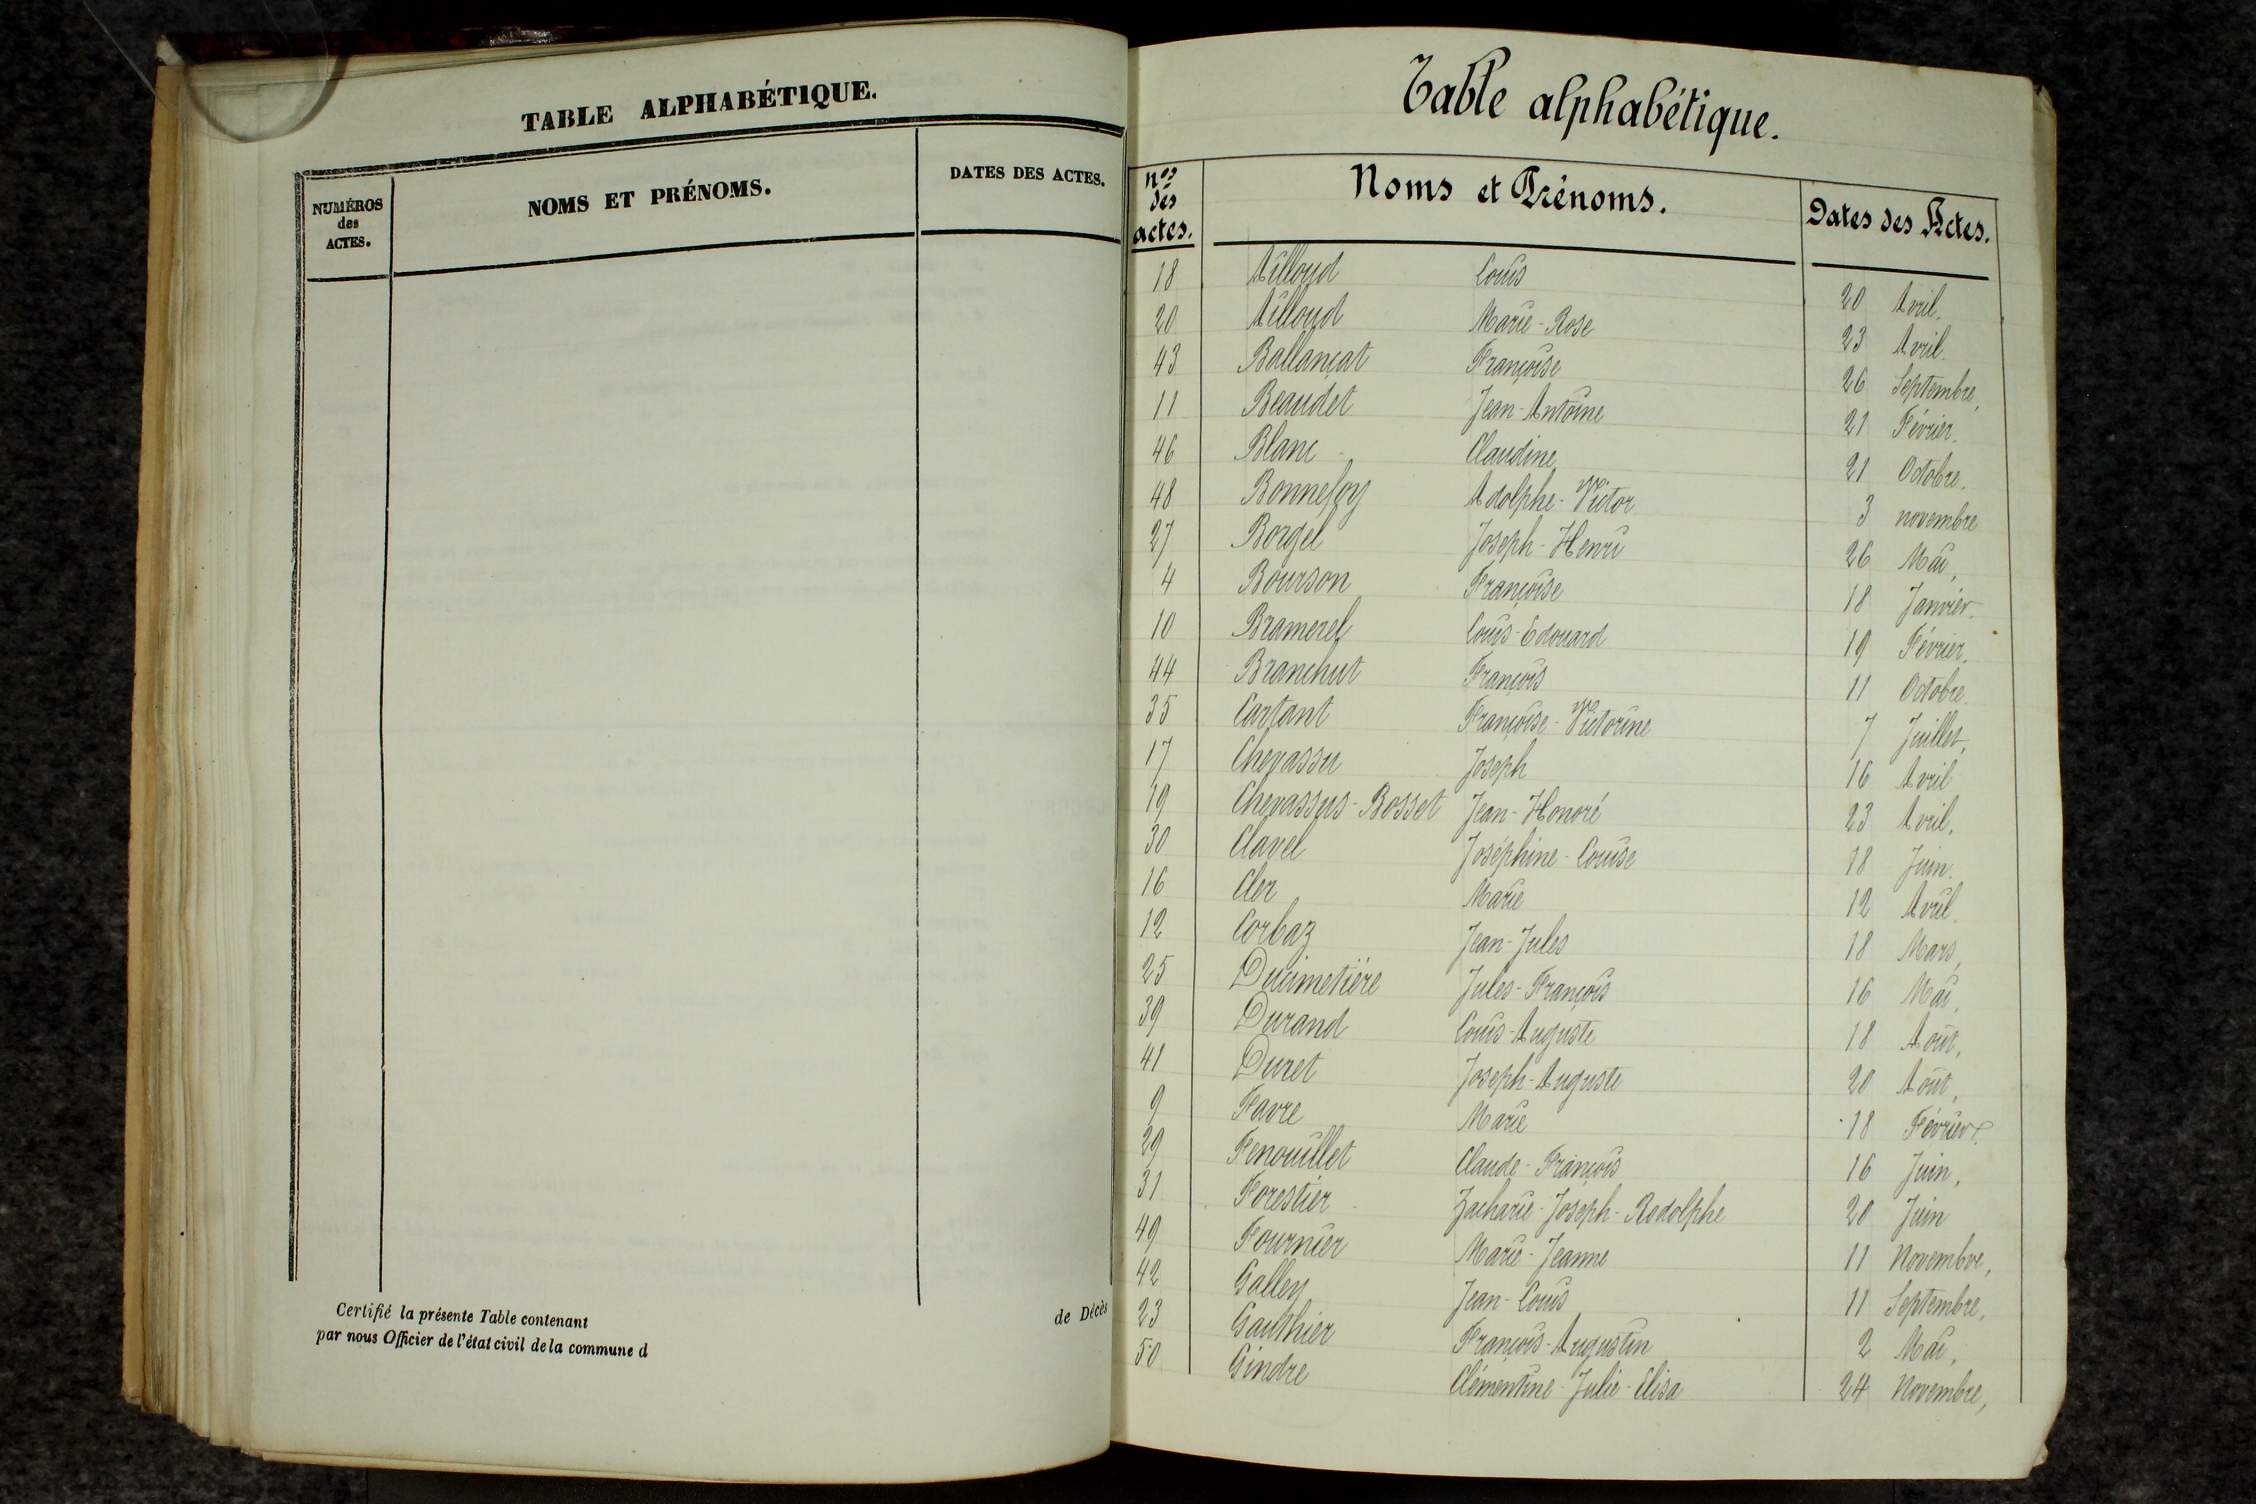 TABLE ALPHABÉTIQUE.
NUMÉROS
des
ACTES.
NOMS ET PRÉNOMS.
DATES DES ACTES.
Certifié la présente Table contenant de Décès
par nous Officier de l'état civil de la commune d
Table alphabétique.
Nos
des
actes.
Noms et Prénoms.
Dates des Actes.
18 Ailloud Louis 20 Avril.
20 Ailloud Marie-Rose 23 Avril.
43 Ballançat Françoise 26 Septembre,
11 Beaudet Jean-Antoine 21 Février.
46 Blanc Claudine 21 Octobre.
48 Bonnefoy Adolphe-Victor 3 novembre
27 Borgel Joseph-Henri 26 Mai,
4 Bourson Françoise 18 Janvier.
10 Bramerel Louis-Edouard 19 Février.
44 Branchut François 11 Octobre.
35 Cartant Françoise-Victorine 7 Juillet,
17 Chevassu Joseph 16 Avril
19 Chevassus-Bosset Jean-Honoré 23 Avril,
30 Clavel Joséphine-Louise 18 Juin.
16 Cler Marie 12 Avril.
12 Corbaz Jean-Jules 18 Mars,
25 Ducimetière Jules-François 16 Mai,
39 Durand Louis-Auguste 18 Août,
41 Duret Joseph-Auguste 20 Août,
9 Favre Marie 18 Février.
29 Fenouillet Claude-François 16 Juin,
31 Forestier Zacharie-Joseph-Rodolphe 20 Juin
49 Fournier Marie-Jeanne 11 Novembre,
42 Galley Jean-Louis 11 Septembre,
23 Gauthier François-Augustin 2 Mai,
50 Gindre Clémentine-Julie-Elisa 24 Novembre,